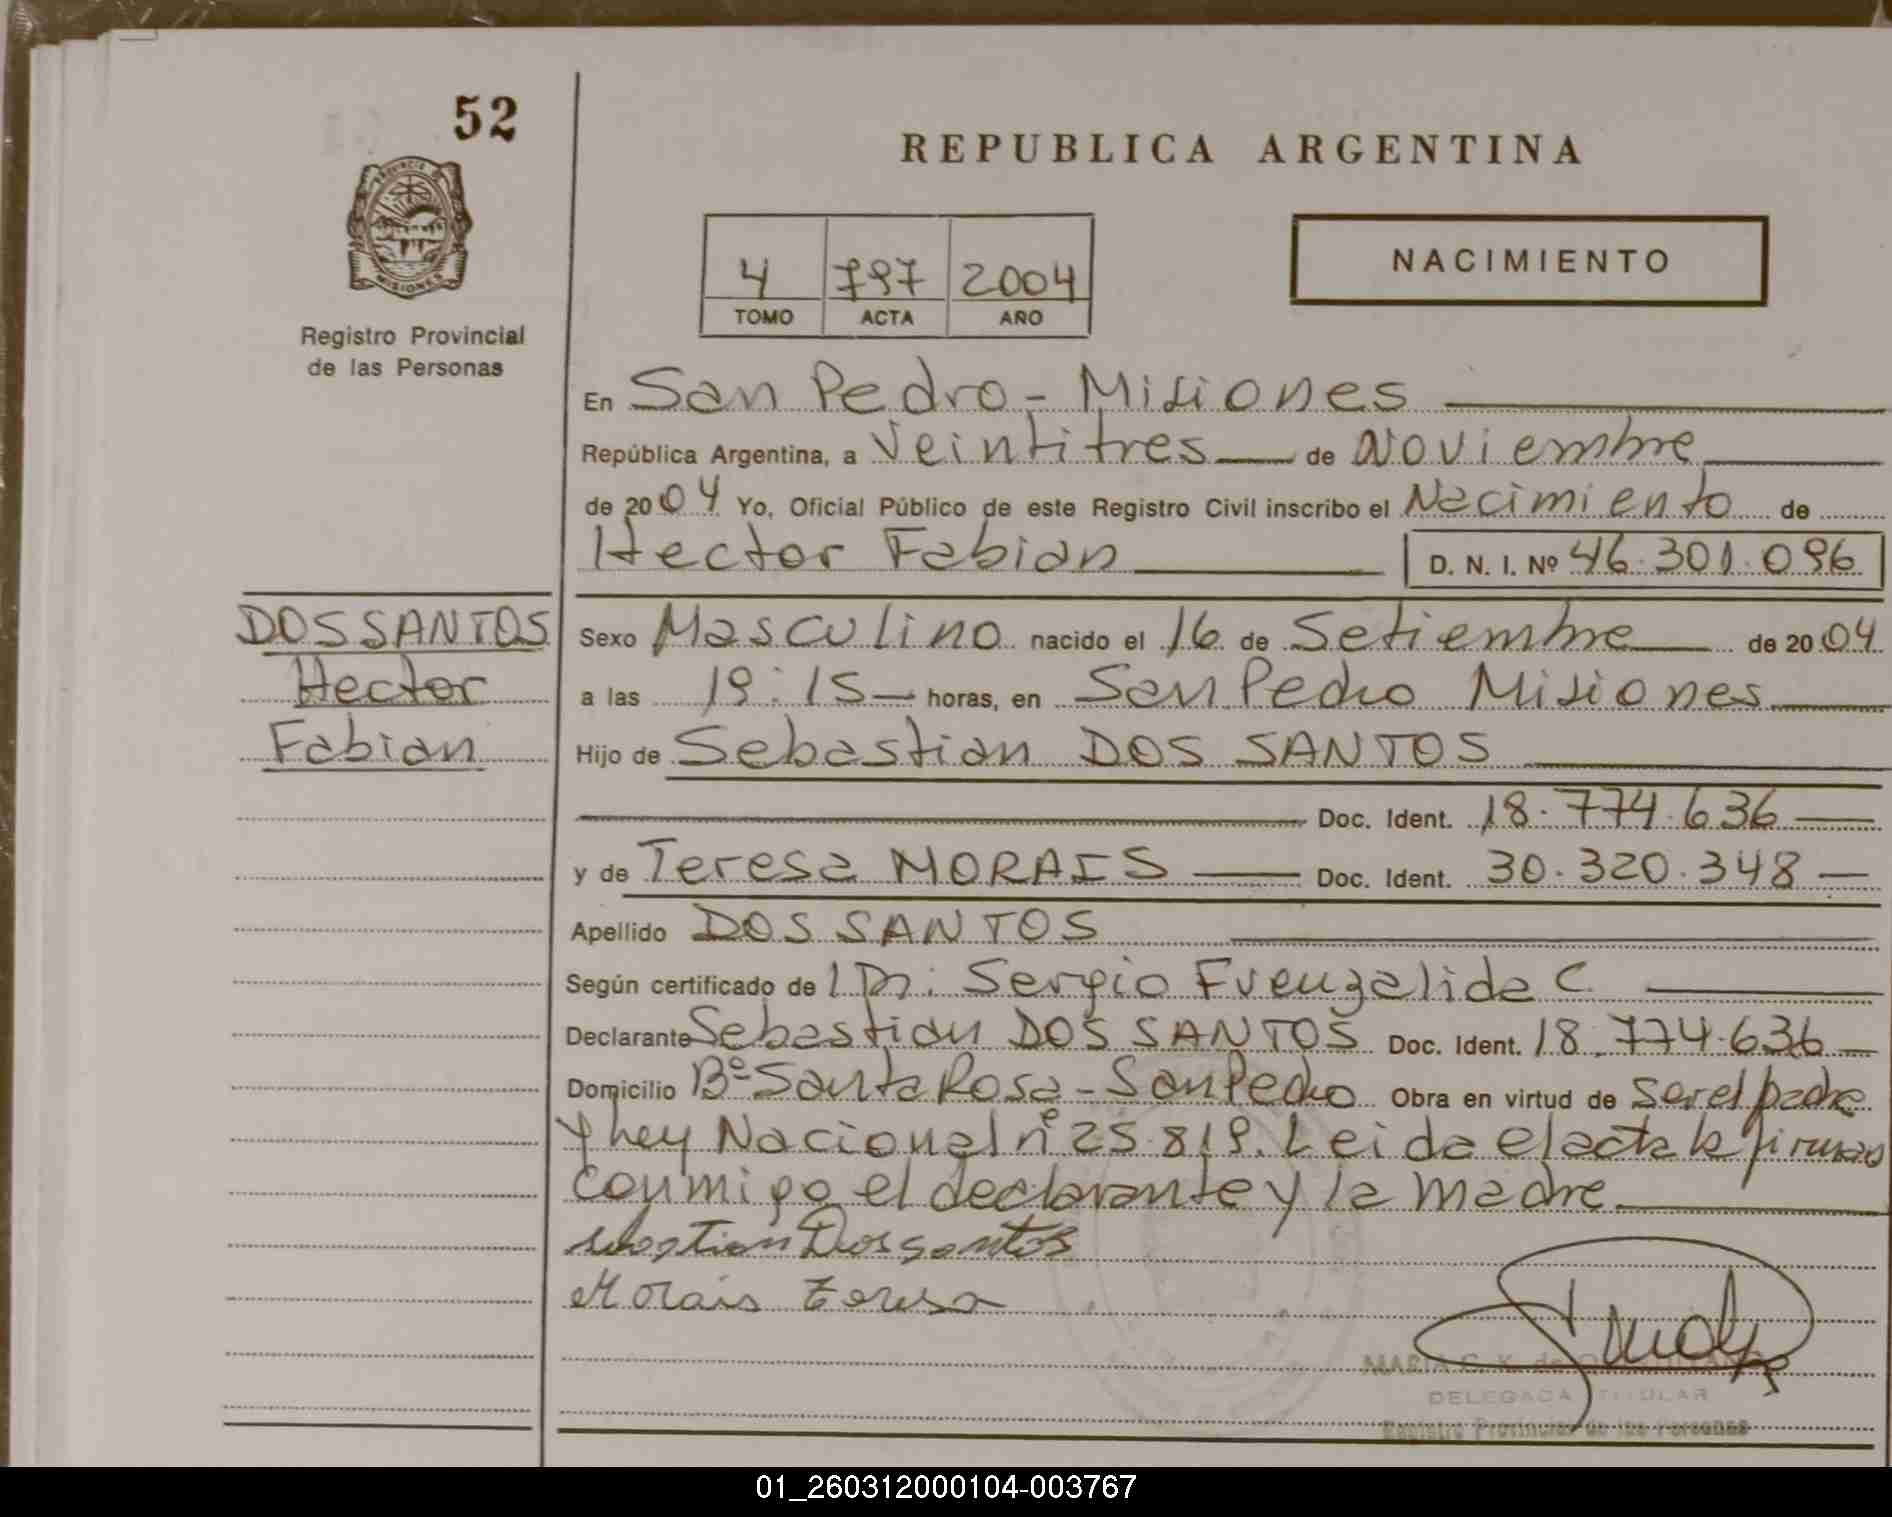 52
REPUBLICA ARGENTINA
PROVINCIA DE MISIONES
4 797 2004
TOMO ACTA AÑO
NACIMIENTO
Registro Provincial
de las Personas
En San Pedro - Misiones
República Argentina, a Veintitres de Noviembre
de 2004 Yo, Oficial Público de este Registro Civil inscribo el Nacimiento de
Hector Fabian D. N. I. Nº 46.301.096
DOS SANTOS
Hector
Fabian
Sexo Masculino nacido el 16 de Setiembre de 2004
a las 19:15 horas, en San Pedro Misiones
Hijo de Sebastian DOS SANTOS
Doc. Ident. 18.774.636
y de Teresa MORAIS Doc. Ident. 30.320.348
Apellido DOS SANTOS
Según certificado de Dr. Sergio Fuenzalida C.
Declarante Sebastian DOS SANTOS Doc. Ident. 18.774.636
Domicilio Bº Santa Rosa - San Pedro Obra en virtud de ser el padre
y Ley Nacional nº 25.819. Leida el acta la firman
conmigo el declarante y la madre
sebastian Dos santos
Morais Teresa
MARIA C. K. de
DELEGADA TITULAR
Registro Provincial de las Personas
01_260312000104-003767